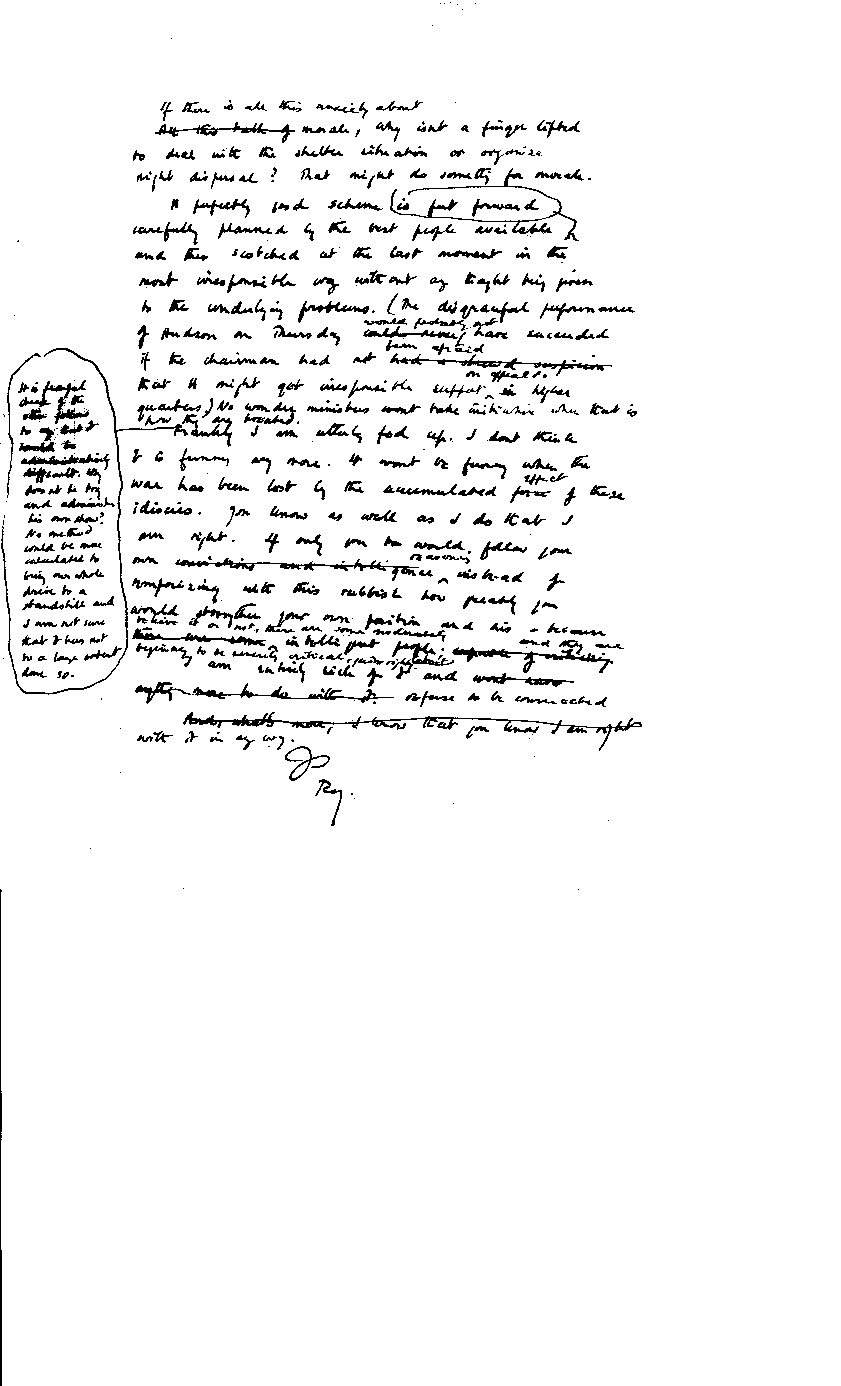 If there is all this anxiety about
All this talk of morale, why isnt a finger lifted
to deal with the shelter situation or organize
night dispersal? That might do something for morale.
A perfectly good scheme is put forward
carefully planned by the best people available
and then scotched at the last moment in the
most irresponsible way without any thought being given
to the underlying problems. (The disgraceful performance
would probably not
of Hudson on Thursday could never have succeeded
been afraid
if the chairman had not had a shrewd suspicion
on appeal to
that it might get irresponsible support in higher
quarters.) No wonder ministers wont take initiative when that is
how they are treated.
Frankly I am utterly fed up. I dont think
it is funny any more. It wont be funny when the
effect
war has been lost by the accumulated force of these
idiocies. You know as well as I do that I
am right. If only you would follow your
reasoning
own convictions and intelligence, instead of
temporizing with this rubbish how greatly you
would strengthen your own position and his - because
believe it or not, there are some moderately
there are some intelligent people capable of criticising
and they are
beginning to be severely critical,
am entirely sick of it and wont have
anything more to do with it. refuse to be connected
And, what's more, I know that you know I am right
with it in any way.
Roy.
It is frightful
cheek of the
other fellows
to say that it
would be
administratively
difficult. Why
does not he try
and administer
his own show?
No method
could be more
calculated to
bring our whole
drive to a
standstill and
I am not sure
that it has not
to a large extent
done so.